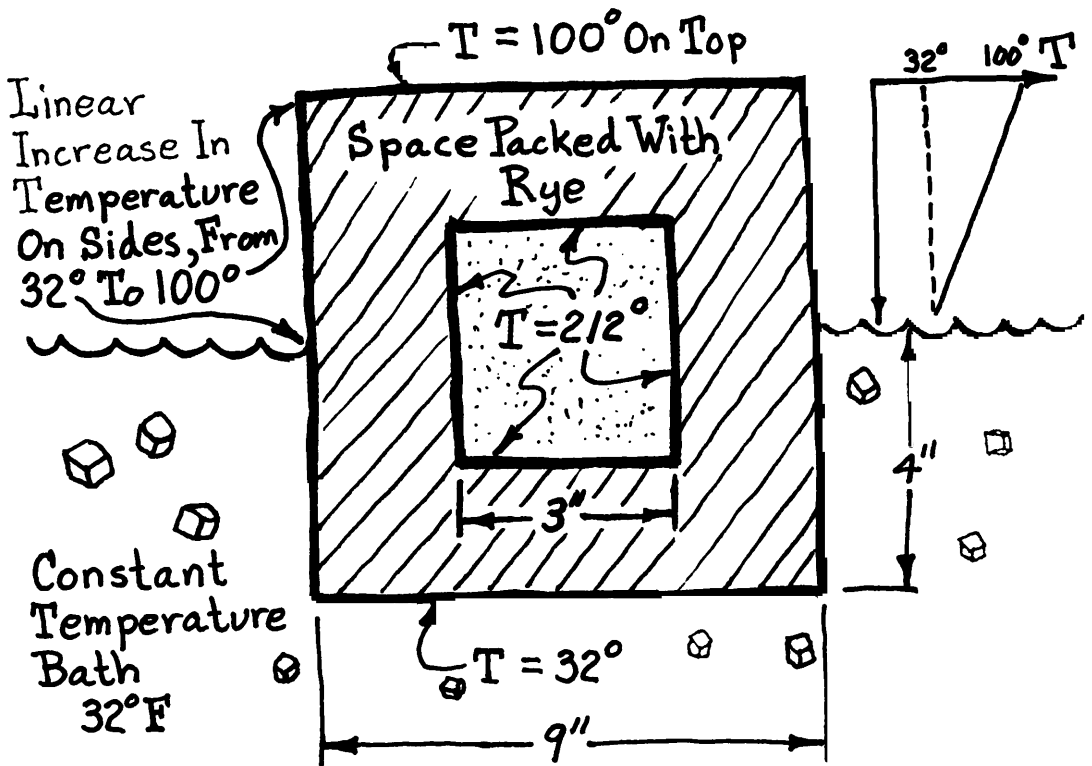 T = 100° On Top
32° 100° T
Linear
Increase In
Temperature
On Sides, From
32° To 100°
Space Packed With
Rye
T = 212°
4"
3"
Constant
Temperature
Bath
32°F
T = 32°
9"